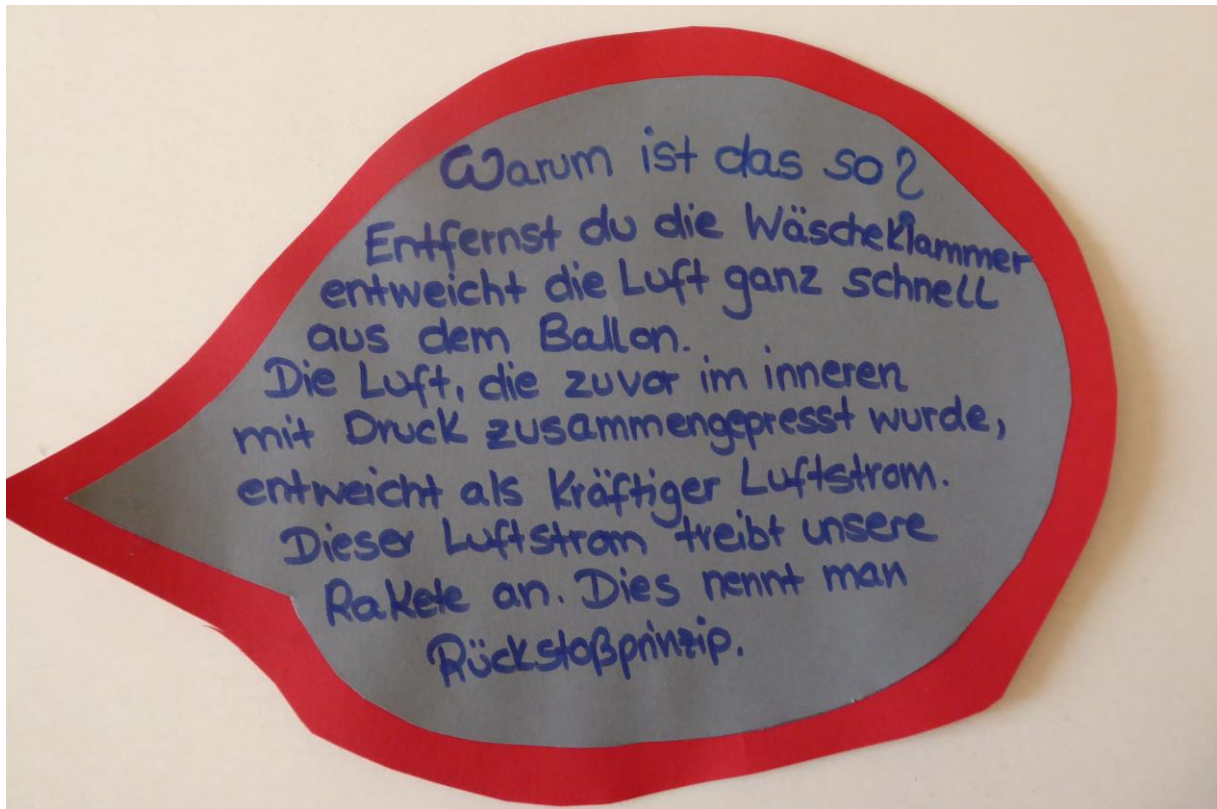 Warum ist das so?
Entfernst du die Wäscheklammer
entweicht die Luft ganz schnell
aus dem Ballon.
Die Luft, die zuvor im inneren
mit Druck zusammengepresst wurde,
entweicht als kräftiger Luftstrom.
Dieser Luftstrom treibt unsere
Rakete an. Dies nennt man
Rückstoßprinzip.